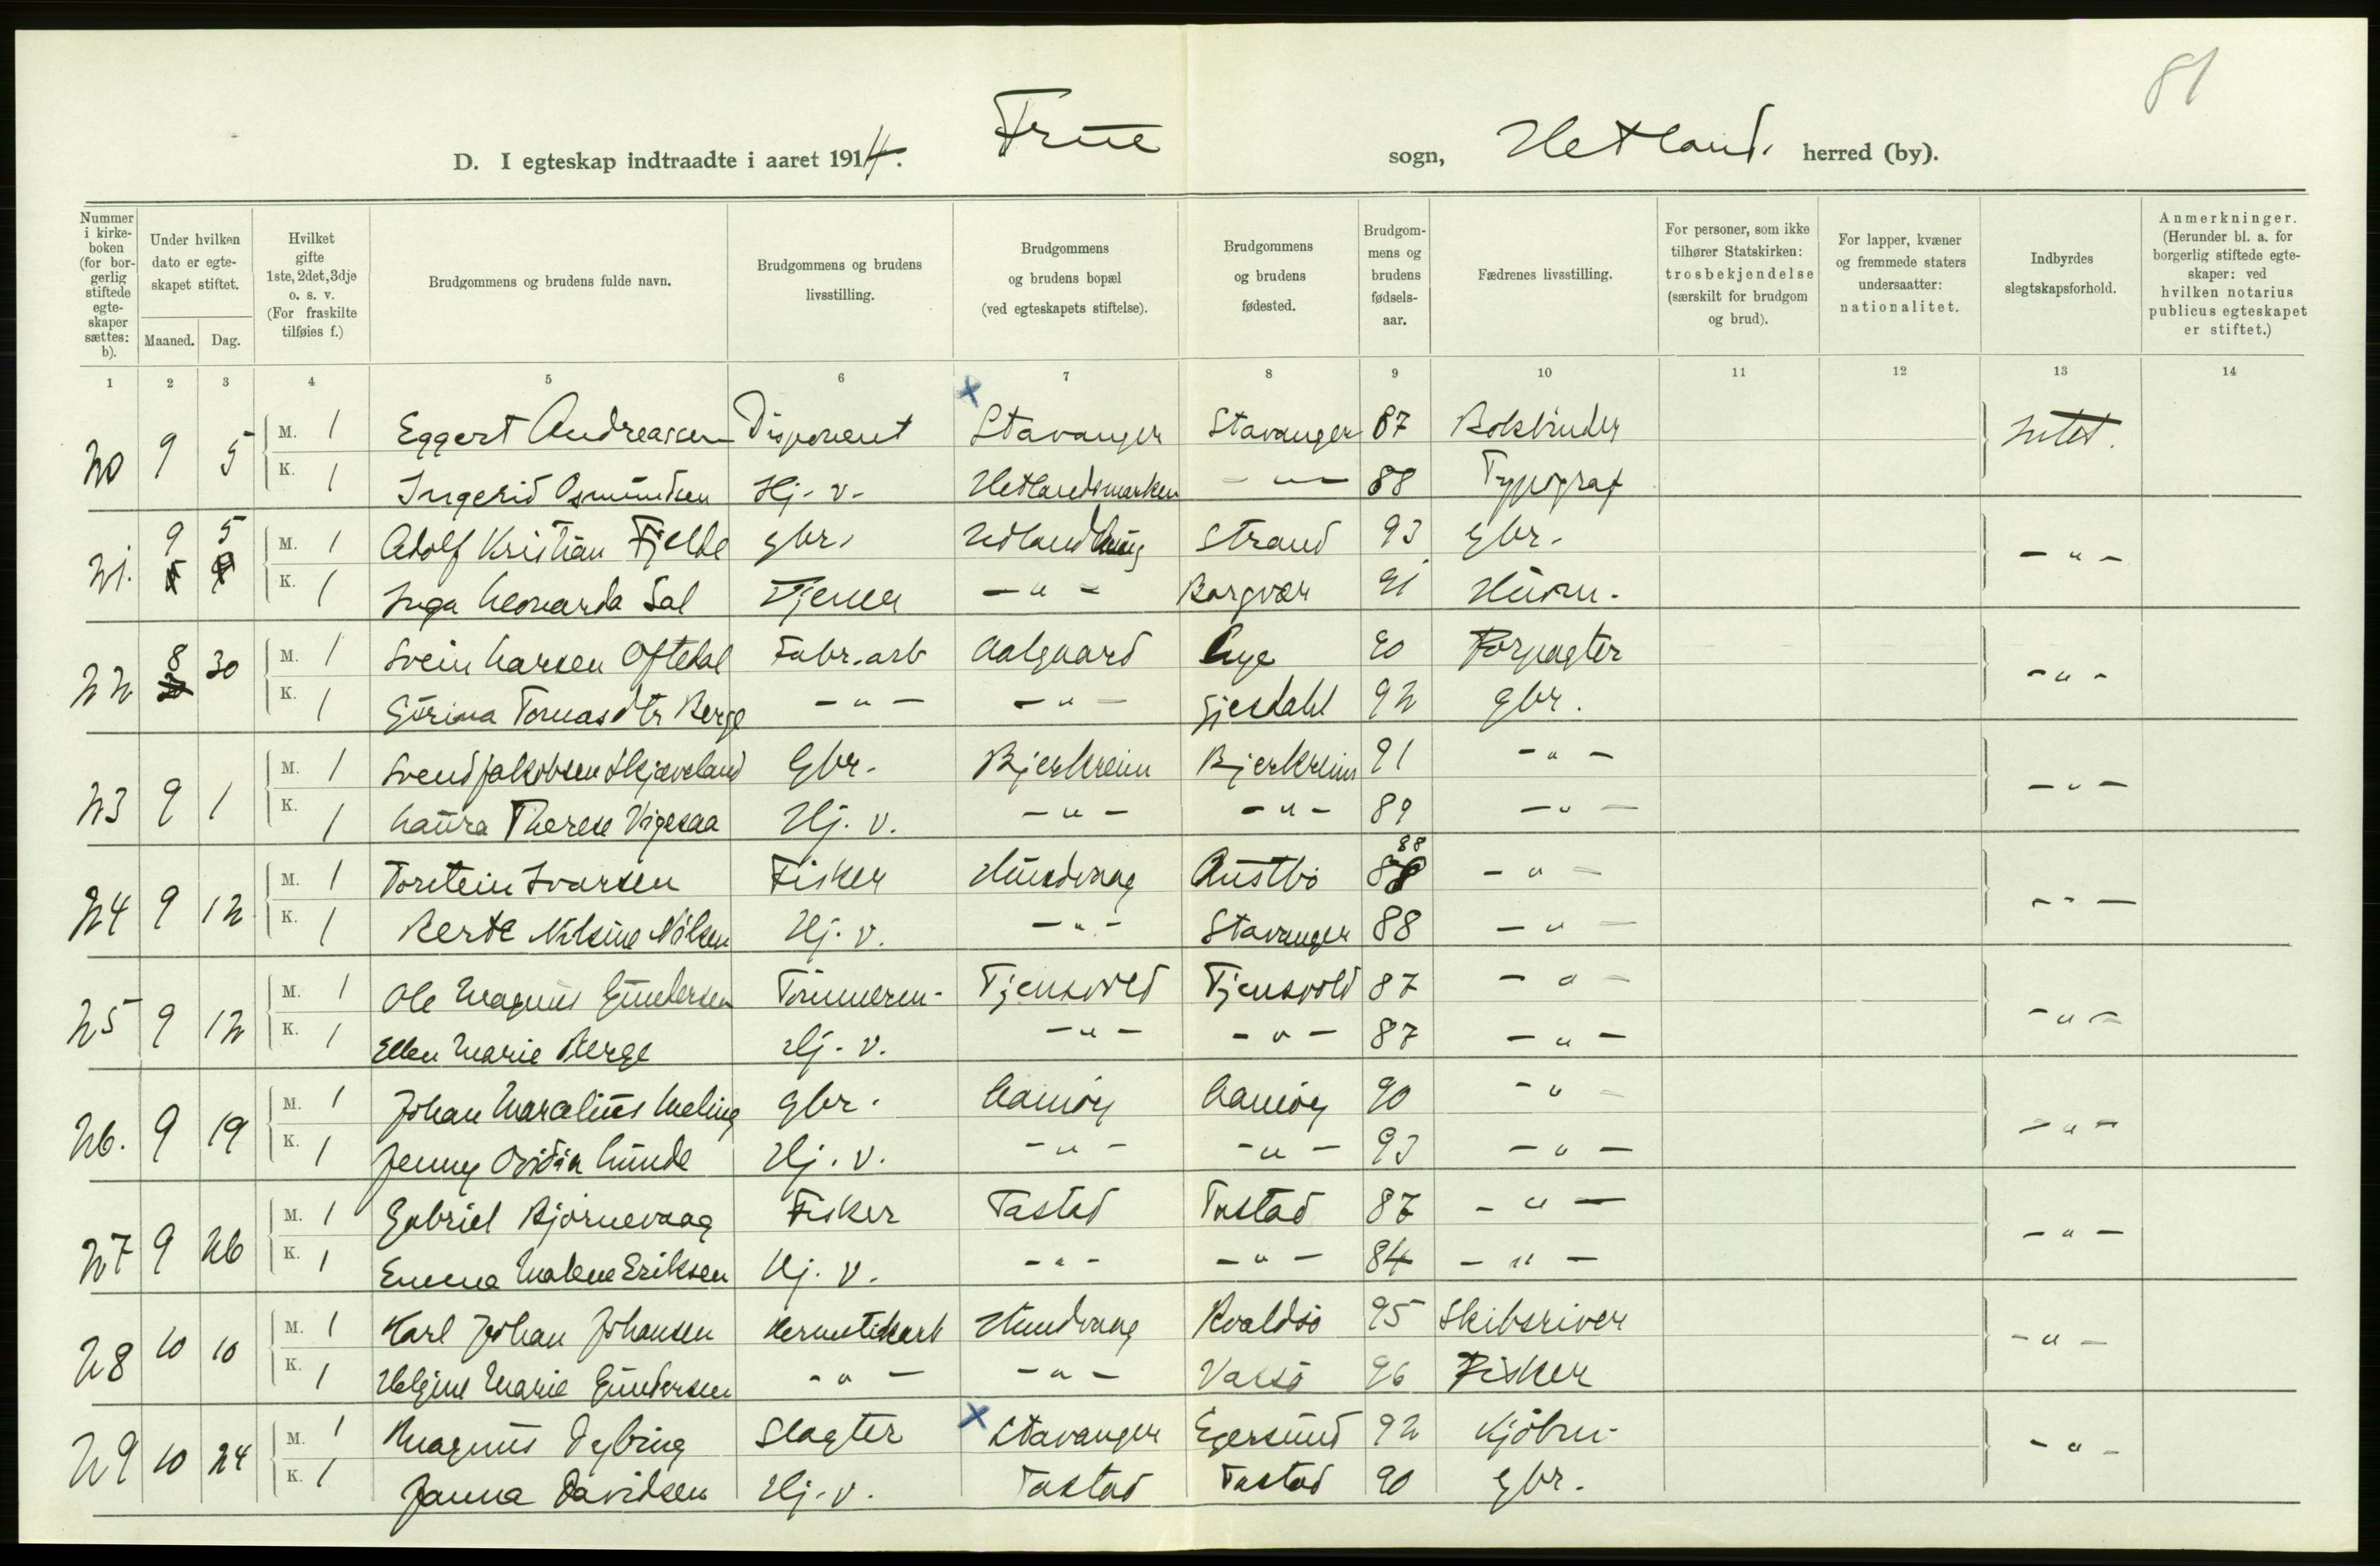 81
D. I egteskap indtraadte i aaret 1914. Frue sogn, Hetland. herred (by).
Nummer i kirkeboken (for borgerlig stiftede egteskaper sættes: b).
Under hvilken dato er egteskapet stiftet.
Maaned. Dag.
Hvilket gifte 1ste, 2det, 3dje o. s. v. (For fraskilte tilføies f.)
Brudgommens og brudens fulde navn.
Brudgommens og brudens livsstilling.
Brudgommens og brudens bopæl (ved egteskapets stiftelse).
Brudgommens og brudens fødested.
Brudgommens og brudens fødselsaar.
Fædrenes livsstilling.
For personer, som ikke tilhører Statskirken: trosbekjendelse (særskilt for brudgom og brud).
For lapper, kvæner og fremmede staters undersaatter: nationalitet.
Indbyrdes slegtskapsforhold.
Anmerkninger. (Herunder bl. a. for borgerlig stiftede egteskaper: ved hvilken notarius publicus egteskapet er stiftet.)
1 2 3 4 5 6 7 8 9 10 11 12 13 14
20 9 5 M. 1 Eggert Andreassen Disponent x Stavanger Stavanger 87 Bokbinder Intet.
K. 1 Ingerid Osmundsen Hj. v. Hetlandsmarken - " - 88 Typograf
21. 9 5 M. 1 Adolf Kristian Fjelde gbr. Strand 93 gbr. - " -
K. 1 Inga Leonarda Sal Tjener - " - Borgvær 91 Husm.
22 8 30 M. 1 Svein Larsen Oftedal Fabr.arb Aalgaard Lye 90 Forpagter - " -
K. 1 Gurina Tomasdtr Berge - " - - " - Gjesdahl 92 gbr.
23 9 1 M. 1 Svend Jakobsen Skjæveland Gbr. Bjerkreim Bjerkreim 91 - " - - " -
K. 1 Laura Therese Vigesaa Hj. v. - " - - " - 89 - " -
24 9 12 M. 1 Torstein Ivarsen Fisker Hundvaag Austbø 88 - " - - " -
K. 1 Berte Nilsine Nilsen Hj. v. - " - Stavanger 88 - " -
25 9 12 M. 1 Ole Magnus Gundersen Tømmerm. Tjensvold Tjensvold 87 - " - - " -
K. 1 Ellen Marie Berge Hj. v. - " - - " - 87 - " -
26. 9 19 M. 1 Johan Marcelius Meling gbr. 90 - " - - " -
K. 1 Jenny Ovidia Lunde Hj. v. - " - - " - 93 - " -
27 9 26 M. 1 Gabriel Bjørnevaag Fisker Tastad Tastad 87 - " - - " -
K. 1 Emma Malene Eriksen Hj. v. - " - - " - 84 - " -
28 10 10 M. 1 Karl Johan Johansen Hermetikarb Hundvaag Roaldsø 95 Skibsriver - " -
K. 1 Helgine Marie Gundersen - " - - " - Vassø 96 Fisker
29 10 24 M. 1 Magnus Dybing Slagter x Stavanger Egersund 92 Kjøbm. - " -
K. 1 Janna Davidsen Hj. v. Tastad Tastad 90 gbr.